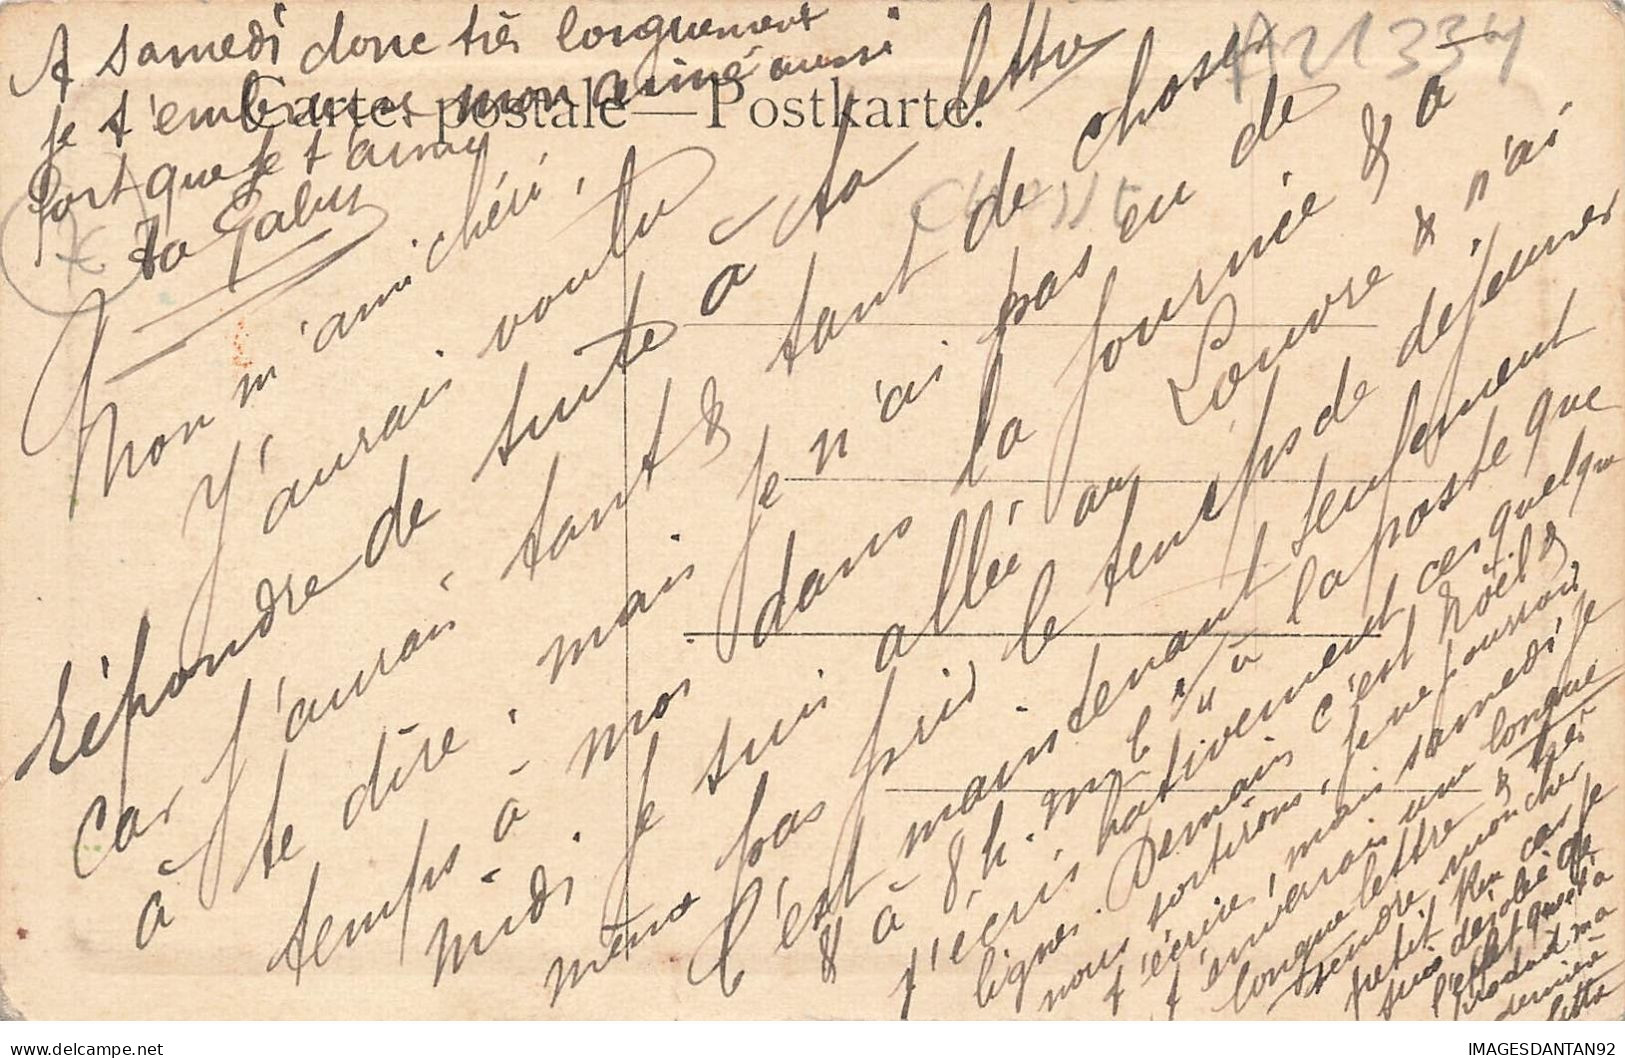 Carte postale — Postkarte.
Mon m'ami chéri,
J'aurais voulu
répondre de suite à ta lettre
car j'aurais tant & tant de choses
à te dire, mais je n'ai pas eu de
temps à moi dans la journée & à
midi je suis allée au Louvre & n'ai
même pas pris le temps de déjeuner
C'est maintenant seulement
& à 8 h. m à la poste que
t'écris hativement ces quelques
lignes. Demain c'est Noël &
nous sortirons, je ne pourrais
t'écrire, mais samedi je
t'enverrais une longue
longue lettre & très
tendre mon cher
petit car je
suis désolée de
l'effet qu'a
produit ma
dernière
lettre
A samedi donc très longuement
je t'embrasse mon aimé aussi
fort que je t'aime
ta
21334
IMAGESDANTAN92